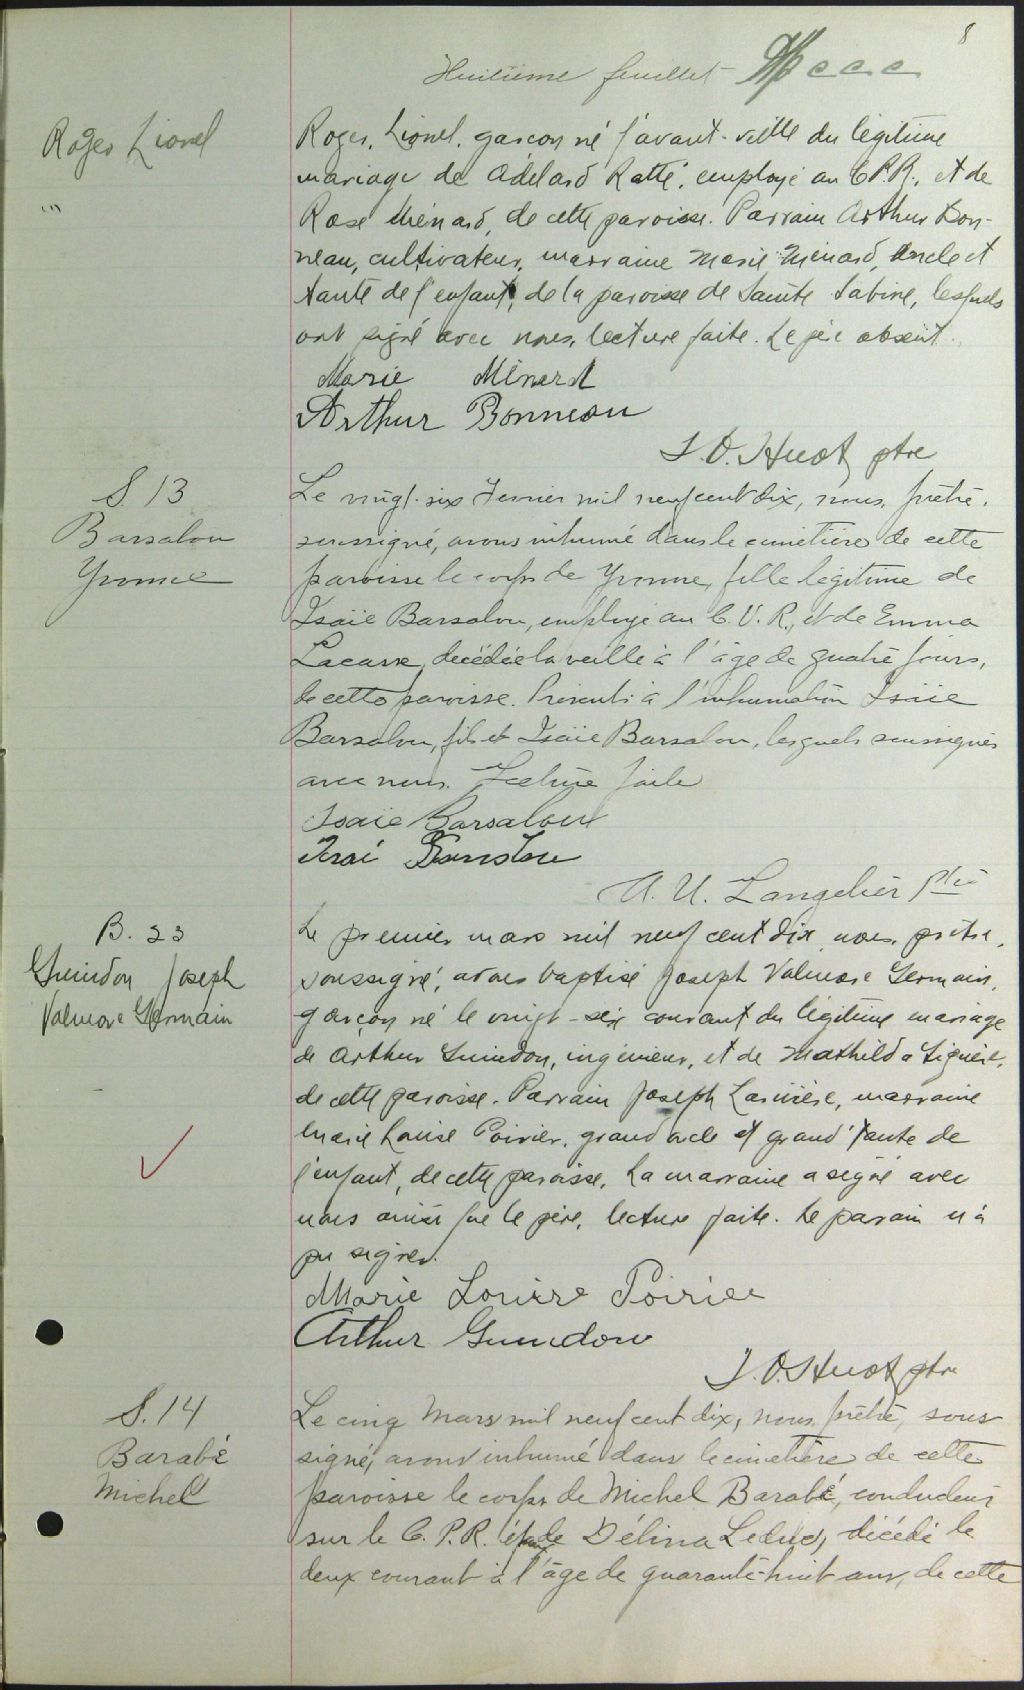 8
Huitième feuillet
Roger Lionel
Roger, Lionel, garçon né l'avant-veille du légitime
mariage de Adélard Ratté, employé au C.P.R., et de
Rose Ménard, de cette paroisse. Parrain Arthur Bon-
neau, cultivateur, marraine Marie Ménard, oncle et
tante de l'enfant, de la paroisse de Sainte Sabine, lesquels
ont signé avec nous, lecture faite. Le père absent.
Marie Ménard
Arthur Bonneau
J.O. Huot ptre
S. 13
Barsalou
Yvonne
Le vingt-six Février mil neuf cent dix, nous, prêtre,
soussigné, avons inhumé dans le cimetière de cette
paroisse le corps de Yvonne, fille légitime de
Isaïe Barsalou, employé au C.V.R., et de Emma
Lacasse, décédée la veille à l'âge de quatre jours,
de cette paroisse. Présents à l'inhumation Isaïe
Barsalou, fils et Isaïe Barsalou, lesquels soussignés
avec nous. Lecture faite
Isaïe Barsalou
A. U. Langelier ptre
B. 23
Guindon Joseph
Valmore Germain
Le premier mars mil neuf cent dix nous, prêtre,
soussigné, avons baptisé Joseph Valmore Germain,
garçon né le vingt-six courant du légitime mariage
de Arthur Guindon, ingénieur, et de Mathilda
de cette paroisse. Parrain Joseph Larivière, marraine
Marie Louise Poirier, grand oncle et grand'tante de
l'enfant, de cette paroisse. La marraine a signé avec
nous ainsi que le père, lecture faite. Le parrain n'a
pu signer.
Marie Louise Poirier
Arthur Guindon
J.O. Huot ptre
S. 14
Barabé
Michel
Le cinq Mars mil neuf cent dix, nous, prêtre, sous
signé, avons inhumé dans le cimetière de cette
paroisse le corps de Michel Barabé, conducteur
sur le C.P.R. époux de Délina Leduc, décédé le
deux courant à l'âge de quarante-huit ans, de cette